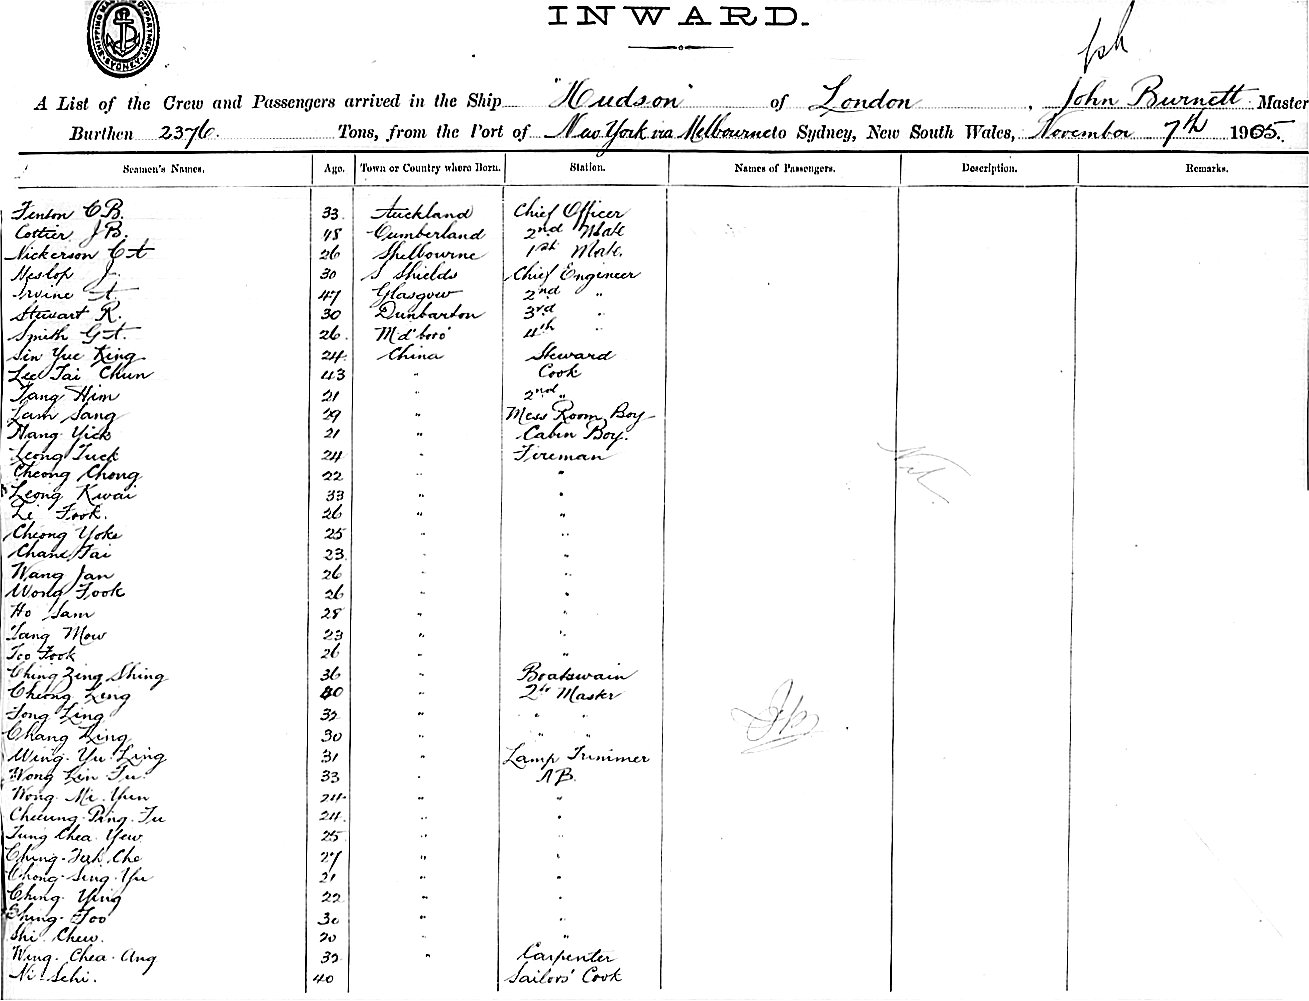 INWARD.
SHIPPING MASTER'S DEPARTMENT SYDNEY
A List of the Crew and Passengers arrived in the Ship "Hudson" of London, John Burnett Master
Burthen 2376. Tons, from the Port of New York via Melbourne to Sydney, New South Wales, November 7th 1905.
Seamen's Names. Age. Town or Country where Born. Station. Names of Passengers. Description. Remarks.
Fenson C B. 33 Auckland Chief Officer
Cottier J B. 48 Cumberland 2nd Mate
Nickerson C A 26 Shelbourne 1st Mate.
Heslop J. 30 S Shields Chief Engineer
Irvine A. 47 Glasgow 2nd "
Stewart R. 30 Dunbarton 3rd "
Smith G A. 26 Md'boro' 4th "
Sin Yue King 24 China Steward
Lee Tai Chun 43 " Cook
Tang Him 21 " 2nd "
Lam Sang 29 " Mess Room Boy
Mang Yick 21 " Cabin Boy.
Leong Tuck 24 " Fireman
Cheong Chong 22 " "
Leong Kwai 33 " "
Li Fook. 26 " "
Cheong Yoke 25 " "
Chane Tai 23 " "
Wang Jan 26 " "
Wong Fook 26 " "
Ho Sam 28 " "
Tang Mow 23 " "
Too Fook 26 " "
Ching Zing Shing 36 " Boatswain
Cheong Ling 40 " 2tr Master
Tong Ling 32 " " "
Chang Ling 30 " " "
Wing Yu Ling 31 " Lamp Trimmer
Wong Lin Fu 33 " AB.
Wong Mi Yun 24 " "
Cheung Ping Fu 24 " "
Tung Chea Yew 25 " "
Ching Che 27 " "
Chong Sing Yu 21 " "
Ching Ying 22 " "
Ching Foo 30 " "
Shi Chew. 20 " "
Wing Chea Ang 32 " Carpenter
Ni Schi. 40 Sailors' Cook